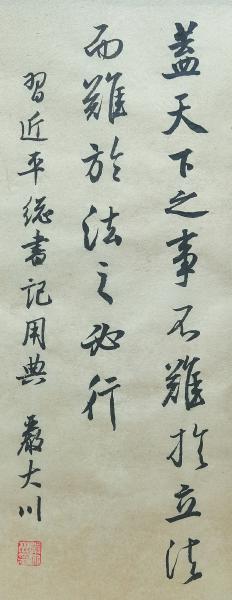 蓋天下之事不難於立法
而難於法之必行
習近平總書記用典 嚴大川